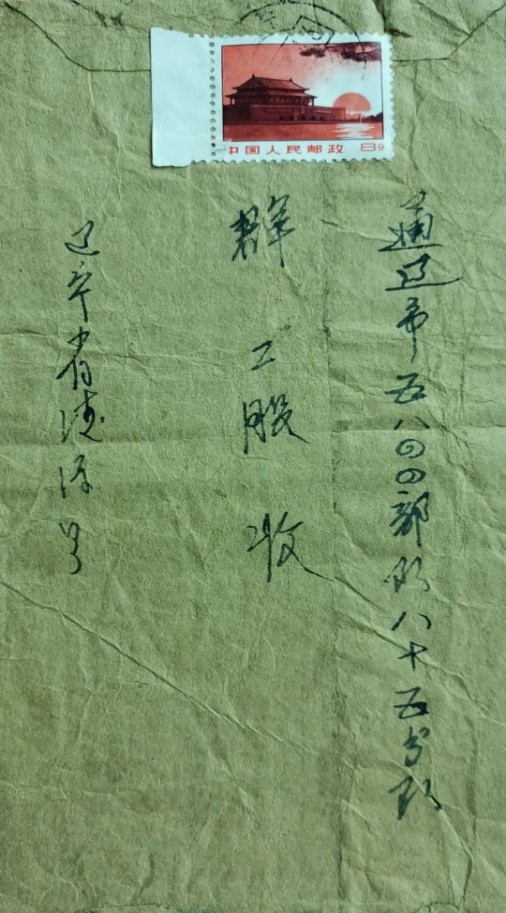 中国人民邮政 8分
通辽市五八四四部队八十五分队
群工股收
辽宁省凌源